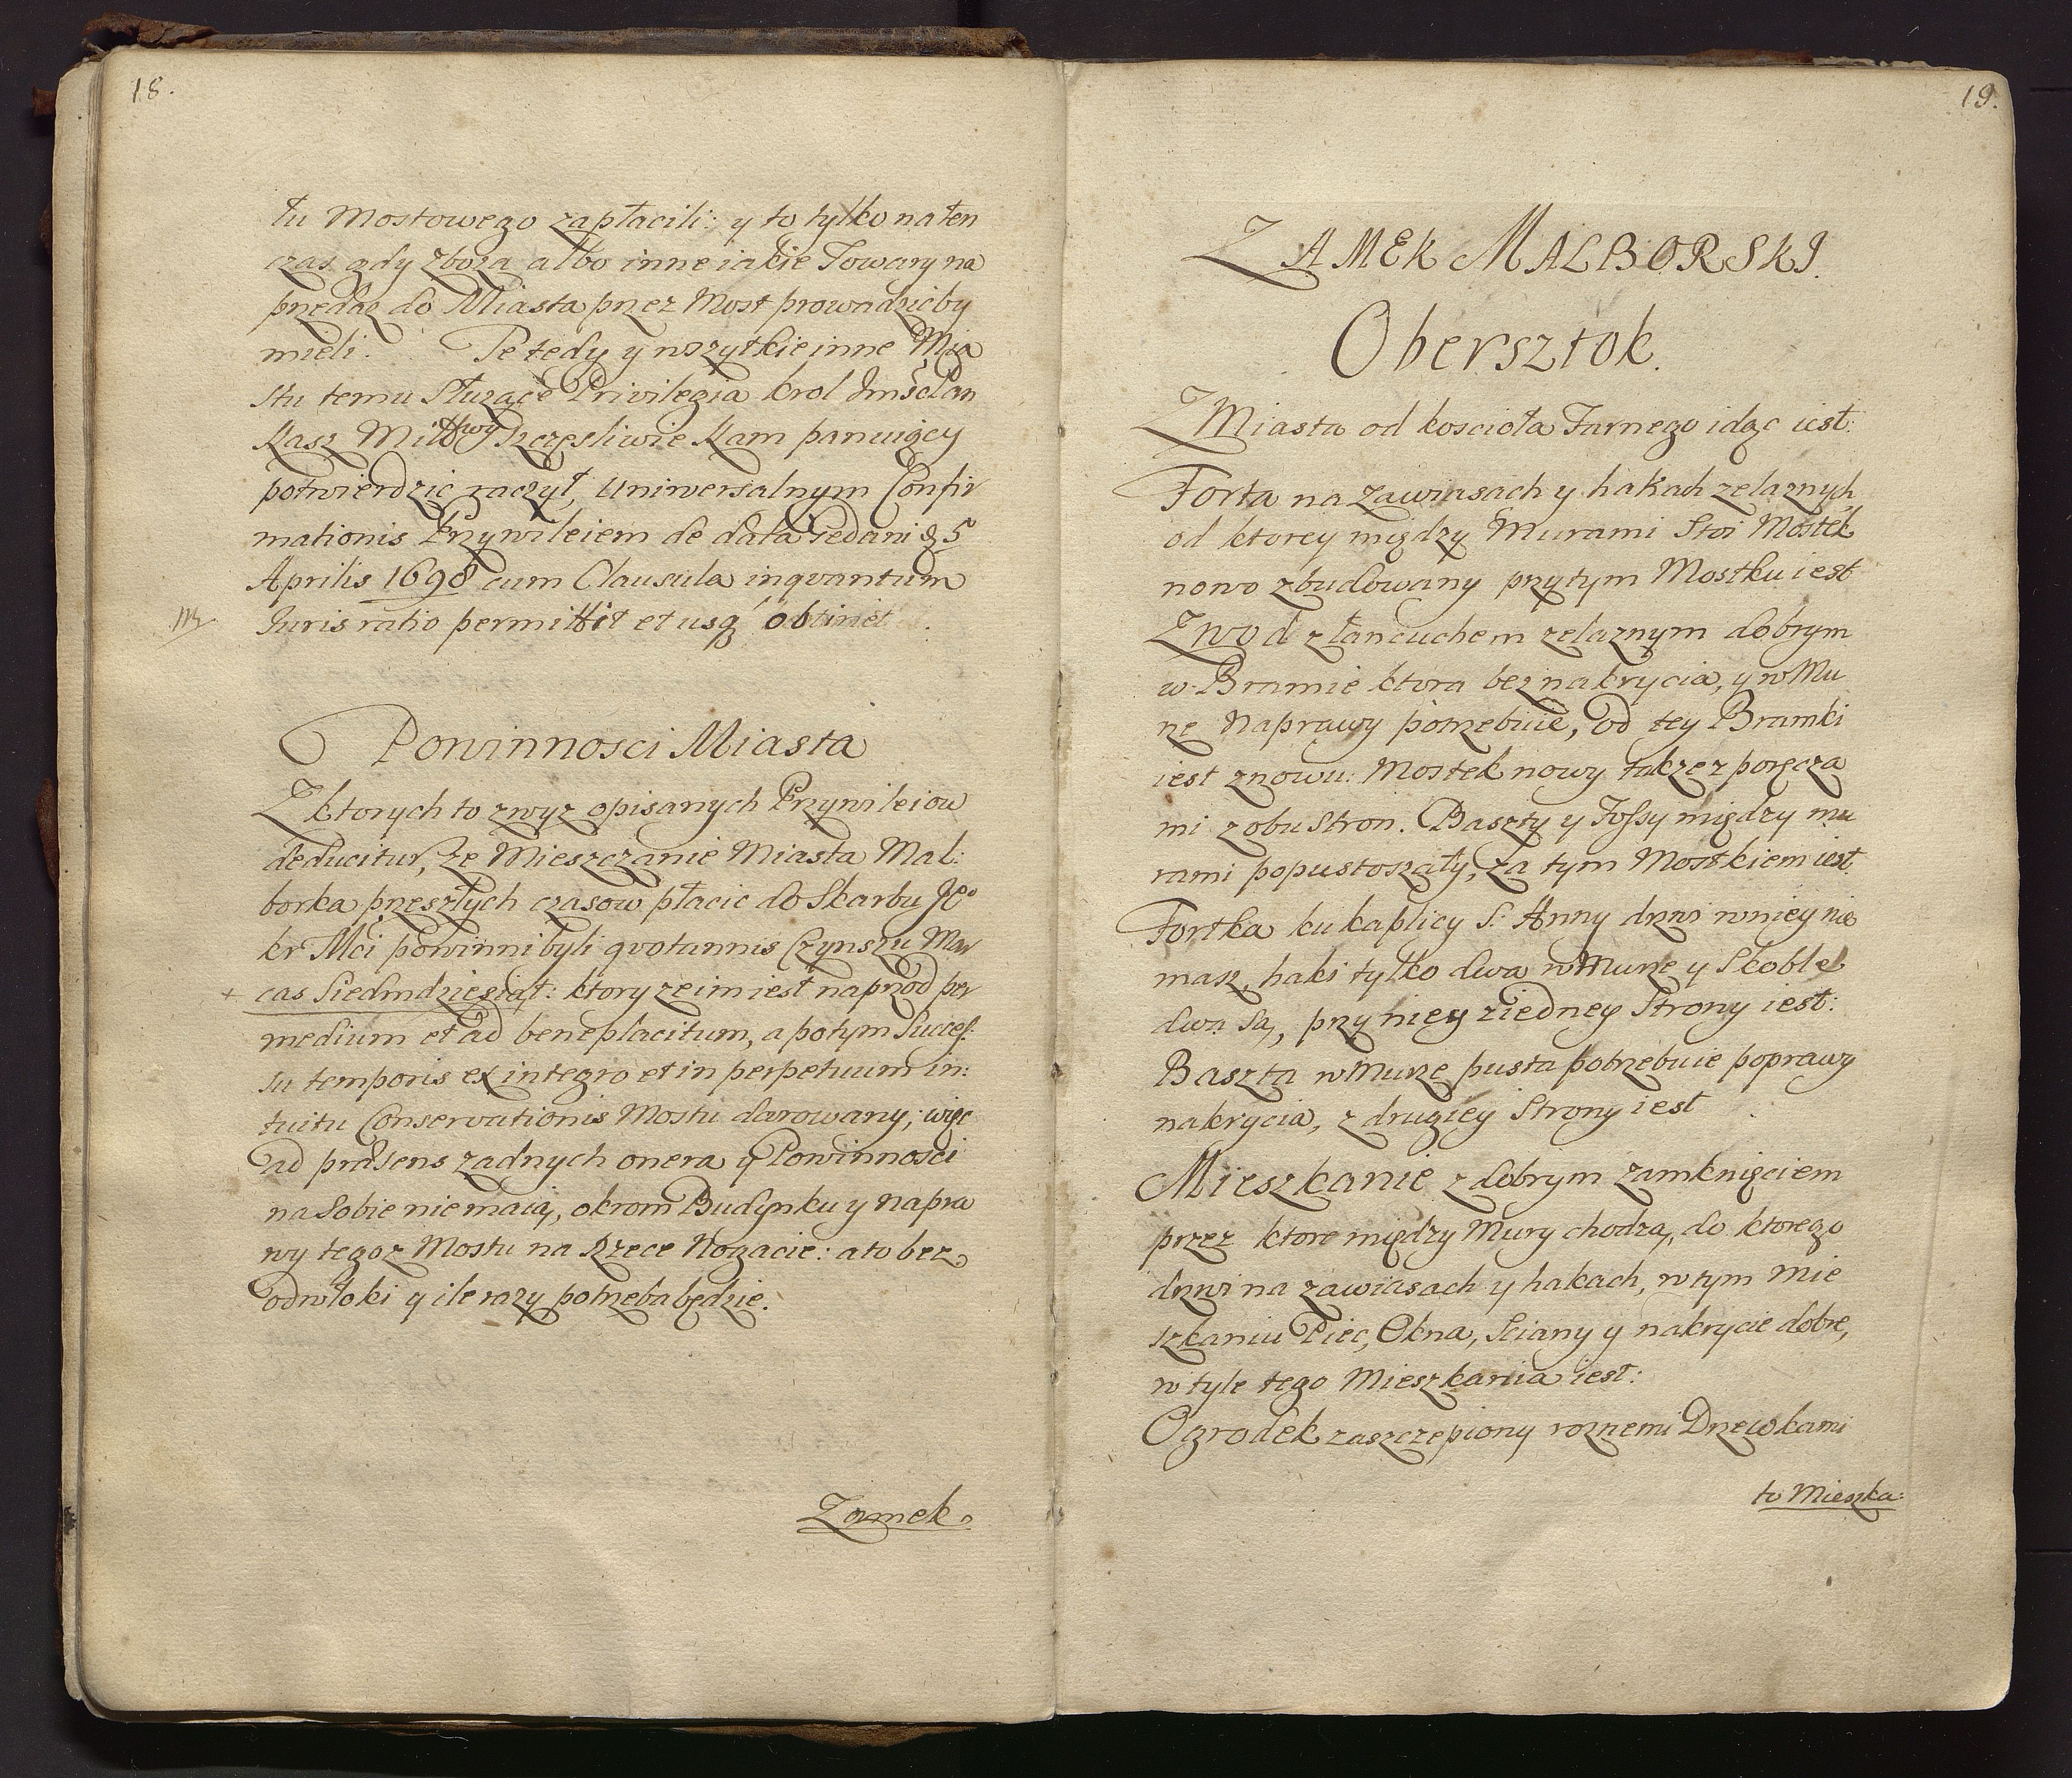 18.
tu Mostowego zapłacili: y to tylko na ten
czas gdy zboża albo inne iakie Towary na
przedaż do Miasta przez Most prowadzićby
mieli. Te tedy y wszytkie inne Mia
stu temu Służące Privilegia krol Jmść Pan
Nasz Miłłwy Szczęsliwie Nam panuiący
potwierdzic raczył, Uniwersalnym Confir
mationis Przywileiem de data Gedani d 5
Aprilis 1698 cum Clausula inqvantum
Juris ratio permittit et usq obtinet.
Powinnosci Miasta
Z ktorych to zwyz opisanych Przywileiow
deducitur, że Mieszczanie Miasta Mal:
borka przeszłych czasow płacic do Skarbu Jeo
kr Mci powinni byli qvotannis Czynszu Mar
+ cas Siedmdziesiąt: ktory ze im iest naprzod per
medium et ad beneplacitum, a potym Succes
su temporis ex integro et in perpetuum in:
tuitu Conservationis Mostu darowany; więc
ad præsens zadnych onera y Powinnosci
na Sobie nie maią, okrom Budynku y napra
wy tegoz Mostu na Rzece Nogacie: a to bez
odwłoki y ile razy potrzeba będzie.
Zamek.
19.
ZAMEK MALBORSKI.
Obersztok.
Z Miasta od koscioła Farnego idąc iest:
Forta na zawiasach y hakach zelaznych
od ktorey między Murami Stoi Mostek
nowo zbudowany przy tym Mostku iest
Zwod z łancuchem zelaznym dobrym
w Bramie ktora bez nakrycia, y w Mu
rze Naprawy potrzebuie, od tey Bramki
iest znowu: Mostek nowy takze z poręcza
mi z obu Stron. Baszty y Fossy między mu
rami popustoszały, za tym Mostkiem iest
Fortka ku kaplicy S: Anny drzwi w niey nie
masz, haki tylko dwa w Murze y Skoble
dwa są, przy niey z iedney Strony iest:
Baszta w Murze pusta potrzebuie poprawy
nakrycia, z drugiey Strony iest
Mieszkanie z dobrym zamknięciem
przez ktore między Mury chodzą, do ktorego
drzwi na zawiasach y hakach, w tym Mie
szkaniu Piec, Okna, Sciany y nakrycie dobre,
w tyle tego Mieszkania iest:
Ogrodek zaszczepiony roznemi Drzewkami
to Mieszka: